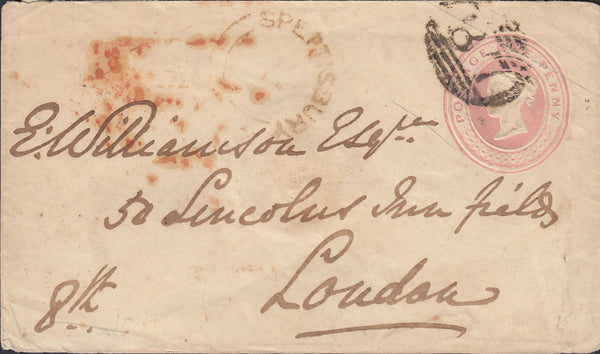 SPETISBURY
POSTAGE ONE PENNY
E. Williamson Esq.re
50 Lincolns Inn fields
London
8th